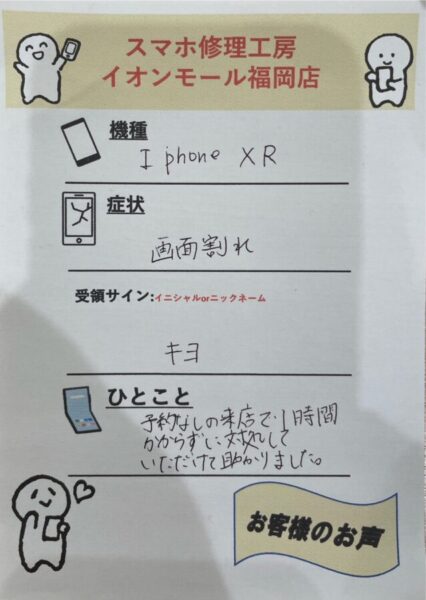 スマホ修理工房
イオンモール福岡店
機種
I phone XR
症状
画面割れ
受領サイン:イニシャルorニックネーム
キヨ
ひとこと
予約なしの来店で、1時間
かからずに対処して
いただけて助かりました。
お客様のお声